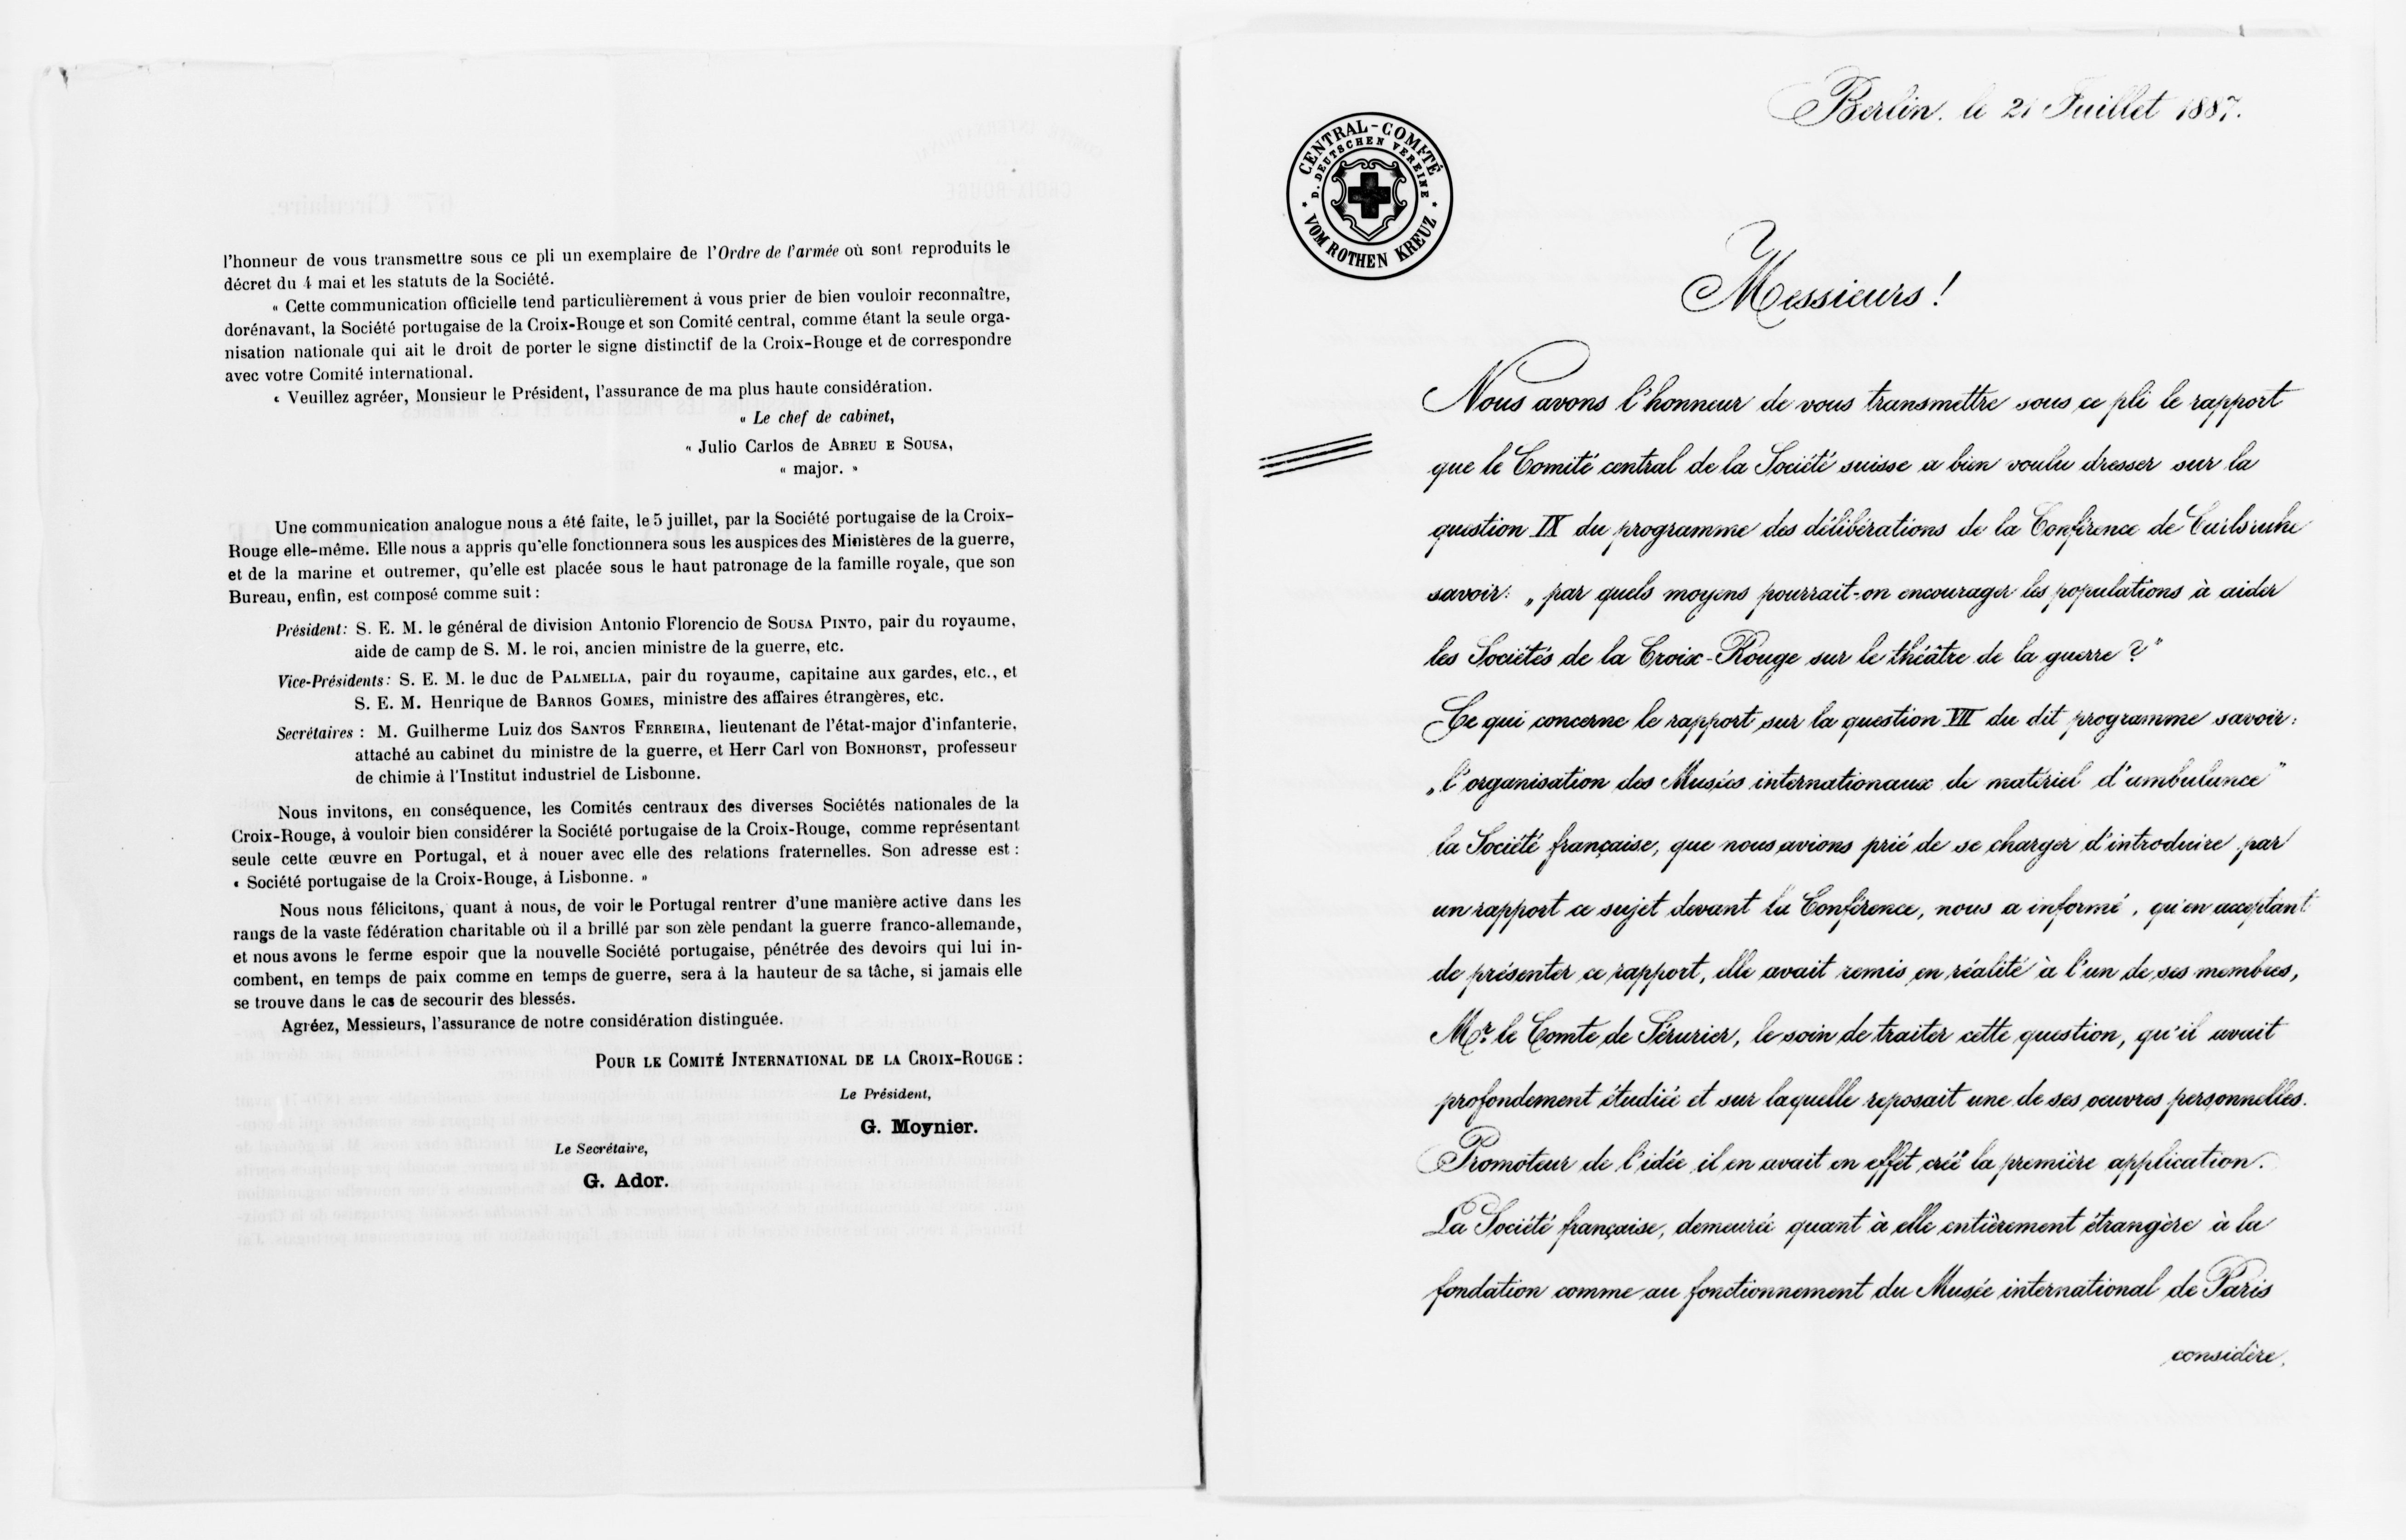 l'honneur de vous transmettre sous ce pli un exemplaire de l'Ordre de l'armée où sont reproduits le
décret du 4 mai et les statuts de la Société.
« Cette communication officielle tend particulièrement à vous prier de bien vouloir reconnaître,
dorénavant, la Société portugaise de la Croix-Rouge et son Comité central, comme étant la seule orga-
nisation nationale qui ait le droit de porter le signe distinctif de la Croix-Rouge et de correspondre
avec votre Comité international.
« Veuillez agréer, Monsieur le Président, l'assurance de ma plus haute considération.
« Le chef de cabinet,
« Julio Carlos de ABREU E SOUSA,
« major. »
Une communication analogue nous a été faite, le 5 juillet, par la Société portugaise de la Croix-
Rouge elle-même. Elle nous a appris qu'elle fonctionnera sous les auspices des Ministères de la guerre,
et de la marine et outremer, qu'elle est placée sous le haut patronage de la famille royale, que son
Bureau, enfin, est composé comme suit :
Président: S. E. M. le général de division Antonio Florencio de SOUSA PINTO, pair du royaume,
aide de camp de S. M. le roi, ancien ministre de la guerre, etc.
Vice-Présidents: S. E. M. le duc de PALMELLA, pair du royaume, capitaine aux gardes, etc., et
S. E. M. Henrique de BARROS GOMES, ministre des affaires étrangères, etc.
Secrétaires : M. Guilherme Luiz dos SANTOS FERREIRA, lieutenant de l'état-major d'infanterie,
attaché au cabinet du ministre de la guerre, et Herr Carl von BONHORST, professeur
de chimie à l'Institut industriel de Lisbonne.
Nous invitons, en conséquence, les Comités centraux des diverses Sociétés nationales de la
Croix-Rouge, à vouloir bien considérer la Société portugaise de la Croix-Rouge, comme représentant
seule cette œuvre en Portugal, et à nouer avec elle des relations fraternelles. Son adresse est :
« Société portugaise de la Croix-Rouge, à Lisbonne. »
Nous nous félicitons, quant à nous, de voir le Portugal rentrer d'une manière active dans les
rangs de la vaste fédération charitable où il a brillé par son zèle pendant la guerre franco-allemande,
et nous avons le ferme espoir que la nouvelle Société portugaise, pénétrée des devoirs qui lui in-
combent, en temps de paix comme en temps de guerre, sera à la hauteur de sa tâche, si jamais elle
se trouve dans le cas de secourir des blessés.
Agréez, Messieurs, l'assurance de notre considération distinguée.
POUR LE COMITÉ INTERNATIONAL DE LA CROIX-ROUGE :
Le Président,
G. Moynier.
Le Secrétaire,
G. Ador.
Berlin. le 21 Juillet 1887.
CENTRAL-COMITÉ
D. DEUTSCHEN VEREINE
VOM ROTHEN KREUZ
Messieurs !
Nous avons l'honneur de vous transmettre sous ce pli le rapport
que le Comité central de la Société suisse a bien voulu dresser sur la
question IX du programme des délibérations de la Conférence de Carlsruhe
savoir: „par quels moyens pourrait-on encourager les populations à aider
les Sociétés de la Croix-Rouge sur le théâtre de la guerre ?"
Ce qui concerne le rapport sur la question VII du dit programme savoir:
„l'organisation des Musées internationaux de matériel d'ambulance"
la Société française, que nous avions prié de se charger d'introduire par
un rapport ce sujet devant la Conférence, nous a informé, qu'en acceptant
de présenter ce rapport, elle avait remis en réalité à l'un de ses membres,
Mr. le Comte de Sérurier, le soin de traiter cette question, qu'il avait
profondement étudiée et sur laquelle reposait une de ses oeuvres personnelles.
Promoteur de l'idée il en avait en effet créé la première application.
La Société française, demeurée quant à elle entièrement étrangère à la
fondation comme au fonctionnement du Musée international de Paris
considère,